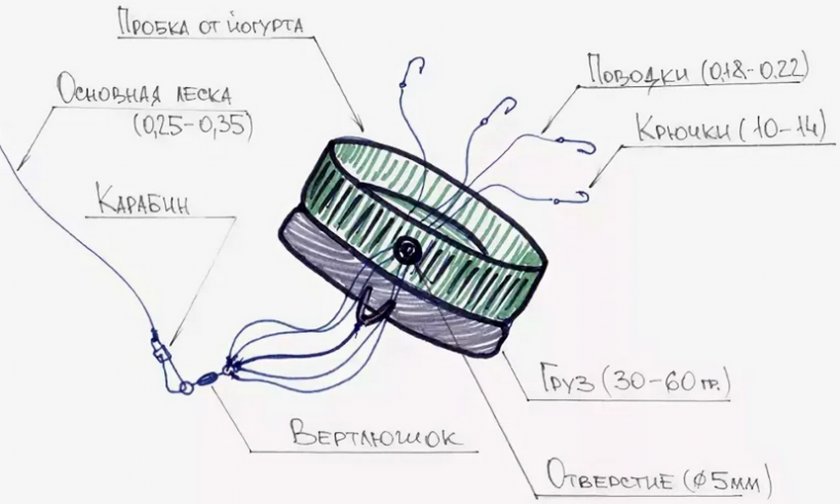 Пробка от йогурта
Основная леска
(0,25-0,35)
Поводки (0,18-0,22)
Крючки (10-14)
Карабин
Груз (30-60 гр.)
Вертлюшок
Отверстие (φ5мм)